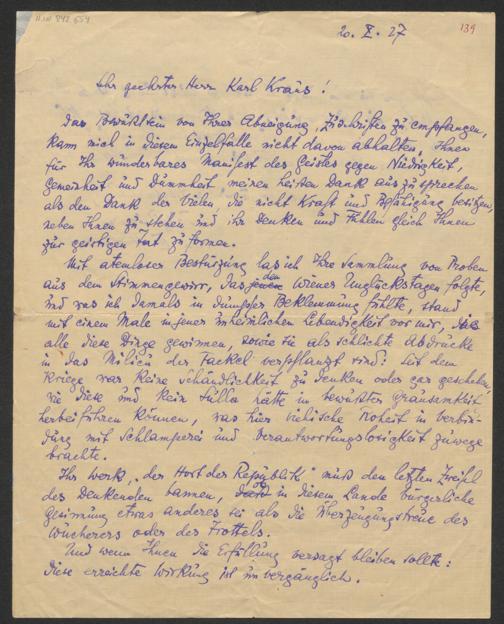 H.I.N. 842.654
139
20. X. 27
Sehr geehrter Herr Karl Kraus!
Das Bewußtsein von Ihrer Abneigung, Zuschriften zu empfangen,
kann mich in diesem Einzelfalle nicht davon abhalten, Ihnen
für Ihr wunderbares Manifest des Geistes gegen Niedrigkeit,
Gemeinheit und Dummheit meinen heißen Dank auszusprechen
als den Dank der Vielen die nicht Kraft und Befähigung besitzen,
neben Ihnen zu stehen und ihr Denken und Fühlen gleich Ihnen
zur geistigen Tat zu formen.
Mit atemloser Bestürzung las ich Ihre Sammlung von Proben
aus dem Stimmengewirr, das den Wiener Unglückstagen folgte,
und was ich damals in dumpfer Beklemmung fühlte, stand
mit einem Male in jener unheimlichen Lebendigkeit vor mir, die
alle diese Dinge gewinnen, sowie sie als schlichte Abdrucke
in das Milieu der Fackel verpflanzt sind: Seit dem
Kriege war keine Schändlichkeit zu denken oder gar geschehen
wie diese und kein Sulla hätte in bewußter Grausamkeit
herbeiführen können, was hier viehische Roheit in Verbin-
dung mit Schlamperei und Verantwortungslosigkeit zuwege
brachte.
Ihr Werk „der Hort der Republik" muß den letzten Zweifel
des Denkenden bannen, ob in diesem Lande bürgerliche
Gesinnung etwas anderes sei als die Überzeugungstreue des
Wucherers oder des Trottels.
Und wenn Ihnen die Erfüllung versagt bleiben sollte:
diese erreichte Wirkung ist unvergänglich.